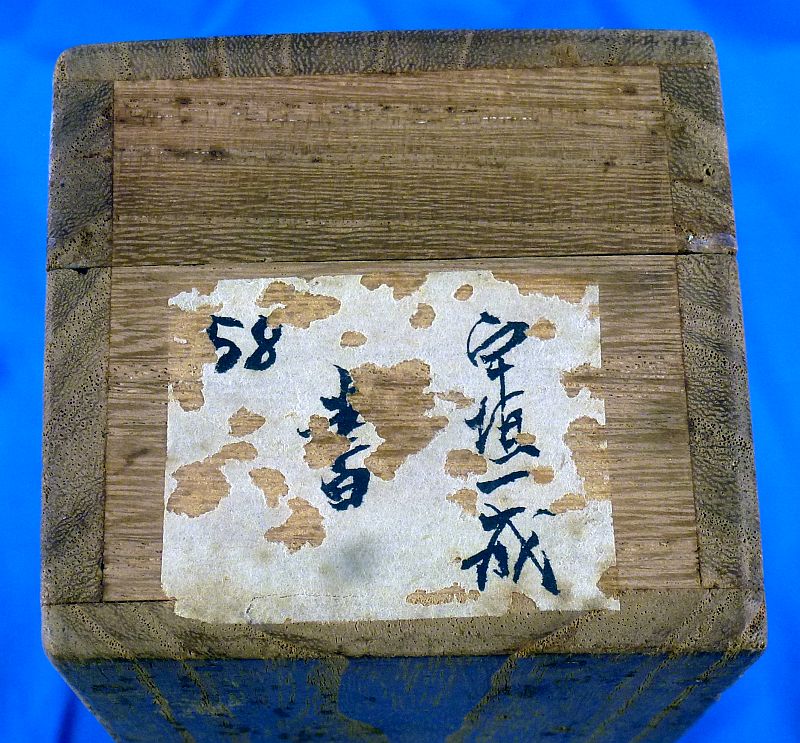 宇垣一成
書
58